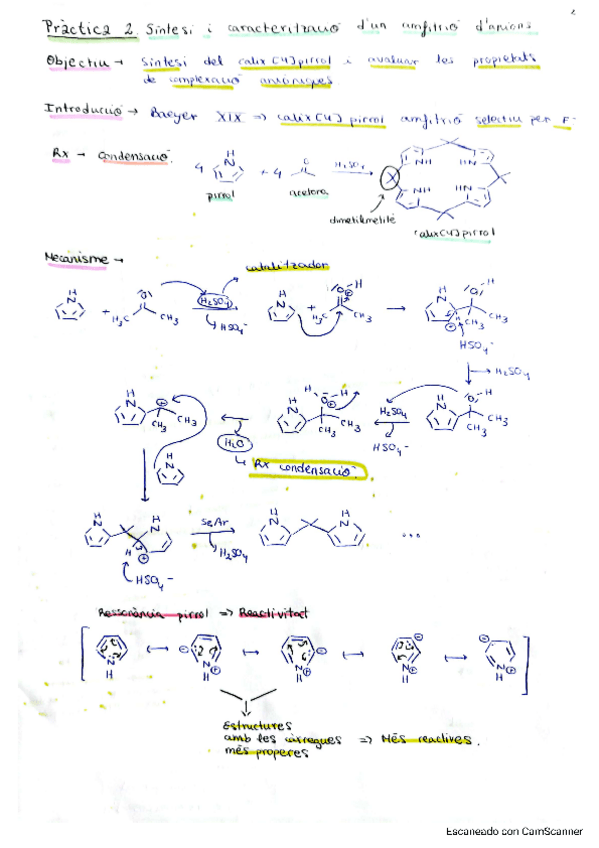 Pràctica 2. Síntesi i caracterització d'un amfitrió d'anions.
Objectiu → Síntesi del calix[4]pirrol i avaluar les propietats
de complexació aniòniques.
Introducció → Baeyer XIX => calix[4]pirrol amfitrió selectiu per F-
Rx → Condensació.
4 NH pirrol + 4 O acetona H2SO4 → NH HN NH HN
dimetilmetilé
calix[4]pirrol
Mecanisme →
catalitzador
H N + H3C CH3 O H2SO4 HSO4- H N + H3C CH3 O H → H N O H CH3 CH3 H
HSO4-
→ H2SO4
H N CH3 CH3 H2O H N H O H CH3 CH3 H2SO4 HSO4- H N O H CH3 CH3
↳ Rx condensació
H N
H N H N H SEAr → H2SO4 H N H N ...
HSO4-
Ressonància pirrol => Reactivitat
N H ↔ N H ↔ N H ↔ N H ↔ N H
Estructures
amb les càrregues => Més reactives.
més properes
Escaneado con CamScanner